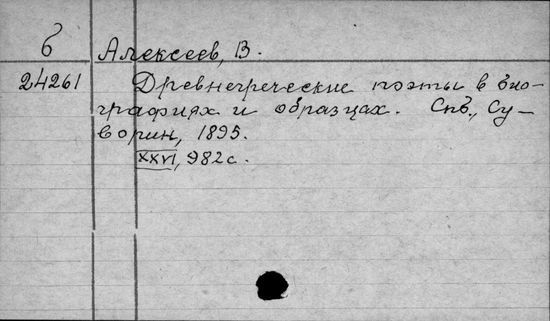 б Алексеев, В.
24261 Древнегреческие поэты в био-
графиях и образцах. Спб., Су-
ворин, 1895.
XXVI, 982 с.